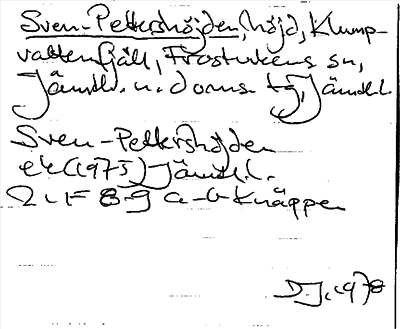 Sven-Pettershöjden, höjd, Klump-
vattenfjäll, Frostvikens sn,
Jämtl. n. doms. tg, Jämtl. l.
Sven-Pettershöjden
ek (1975) Jämtl. l.
22 F 8-9 a-b Knäppen
D.J. 1978